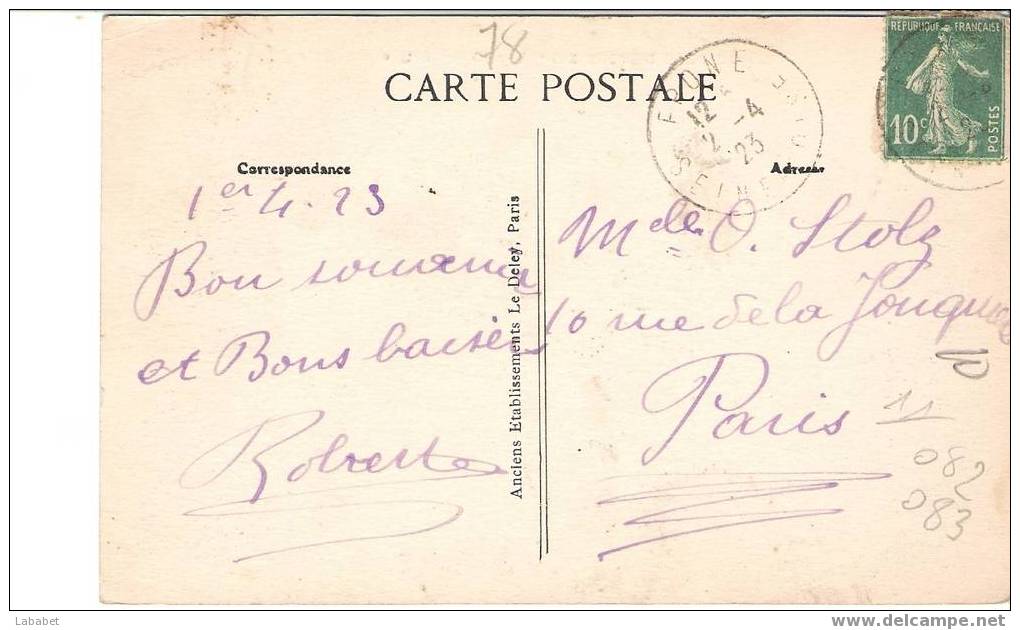 78
CARTE POSTALE
REPUBLIQUE FRANÇAISE
10c
POSTES
12
2 -4
23
Correspondance
Adresse
1er 4. 23
Bon souvenir
et Bons baisers
Roberte
Anciens Etablissements Le Deley, Paris
Mde O. Stolz
10 rue de la Jonquière
Paris
11
082
083
Lababet
www.delcampe.net